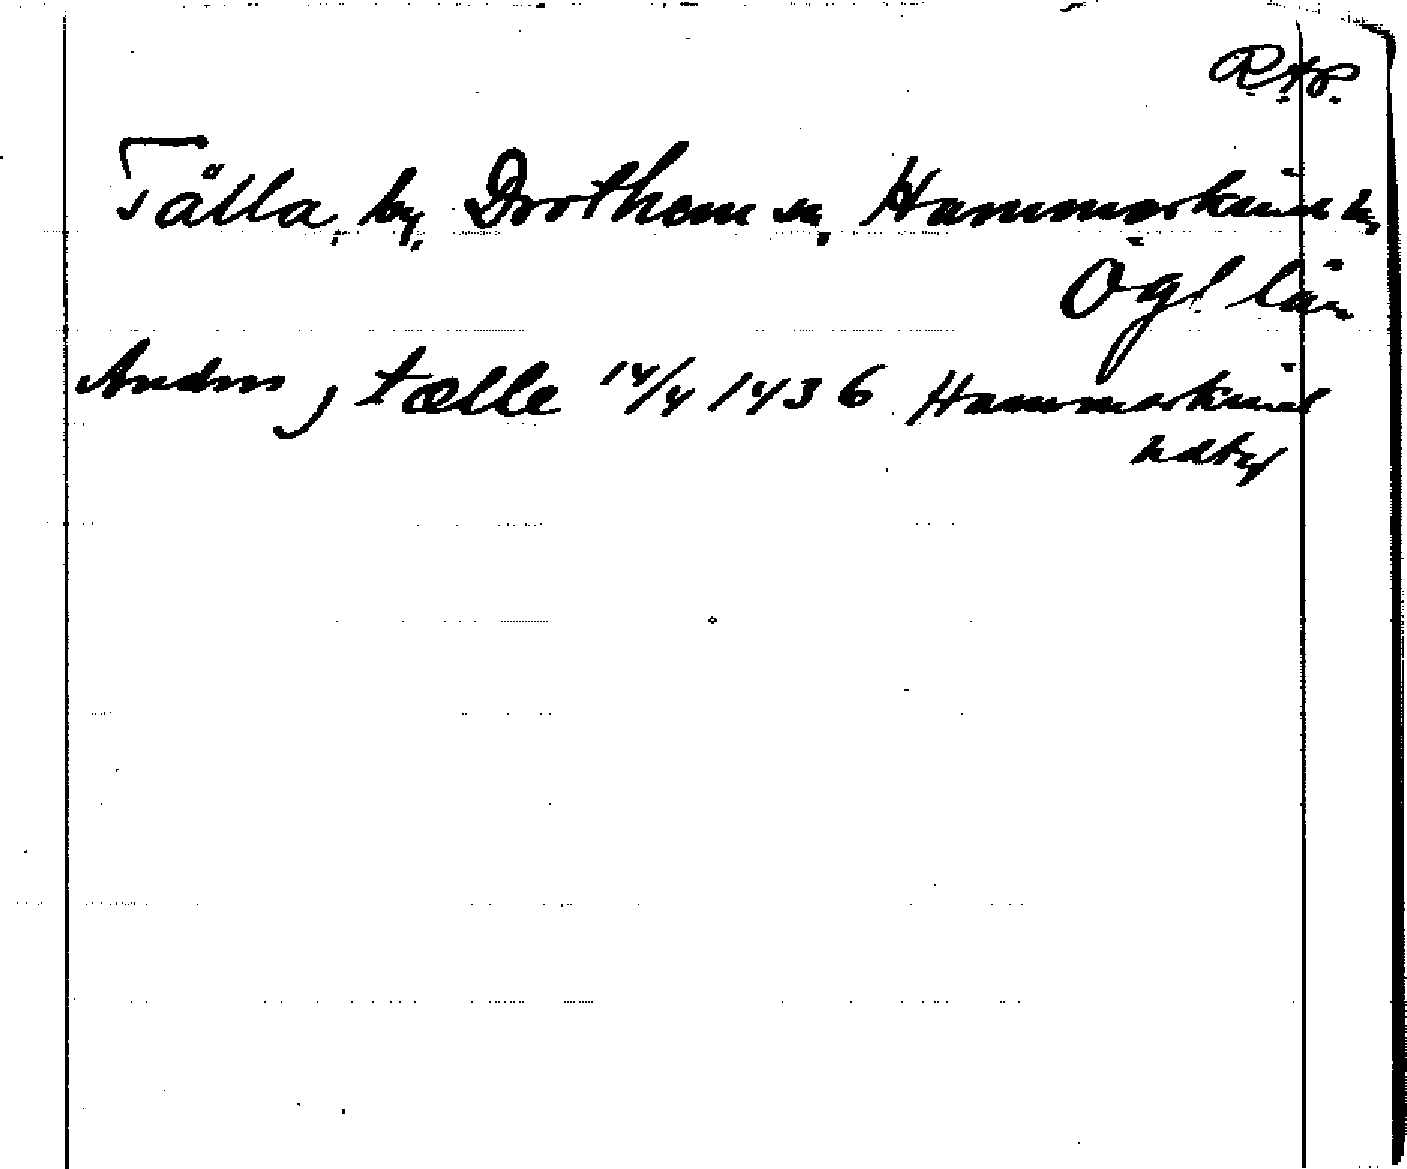 R.A.P.
Tälla, by, Drothem sn, Hammarkind h,
Ögl län
Anders j tælle 14/4 1436 Hammarkind
hdby